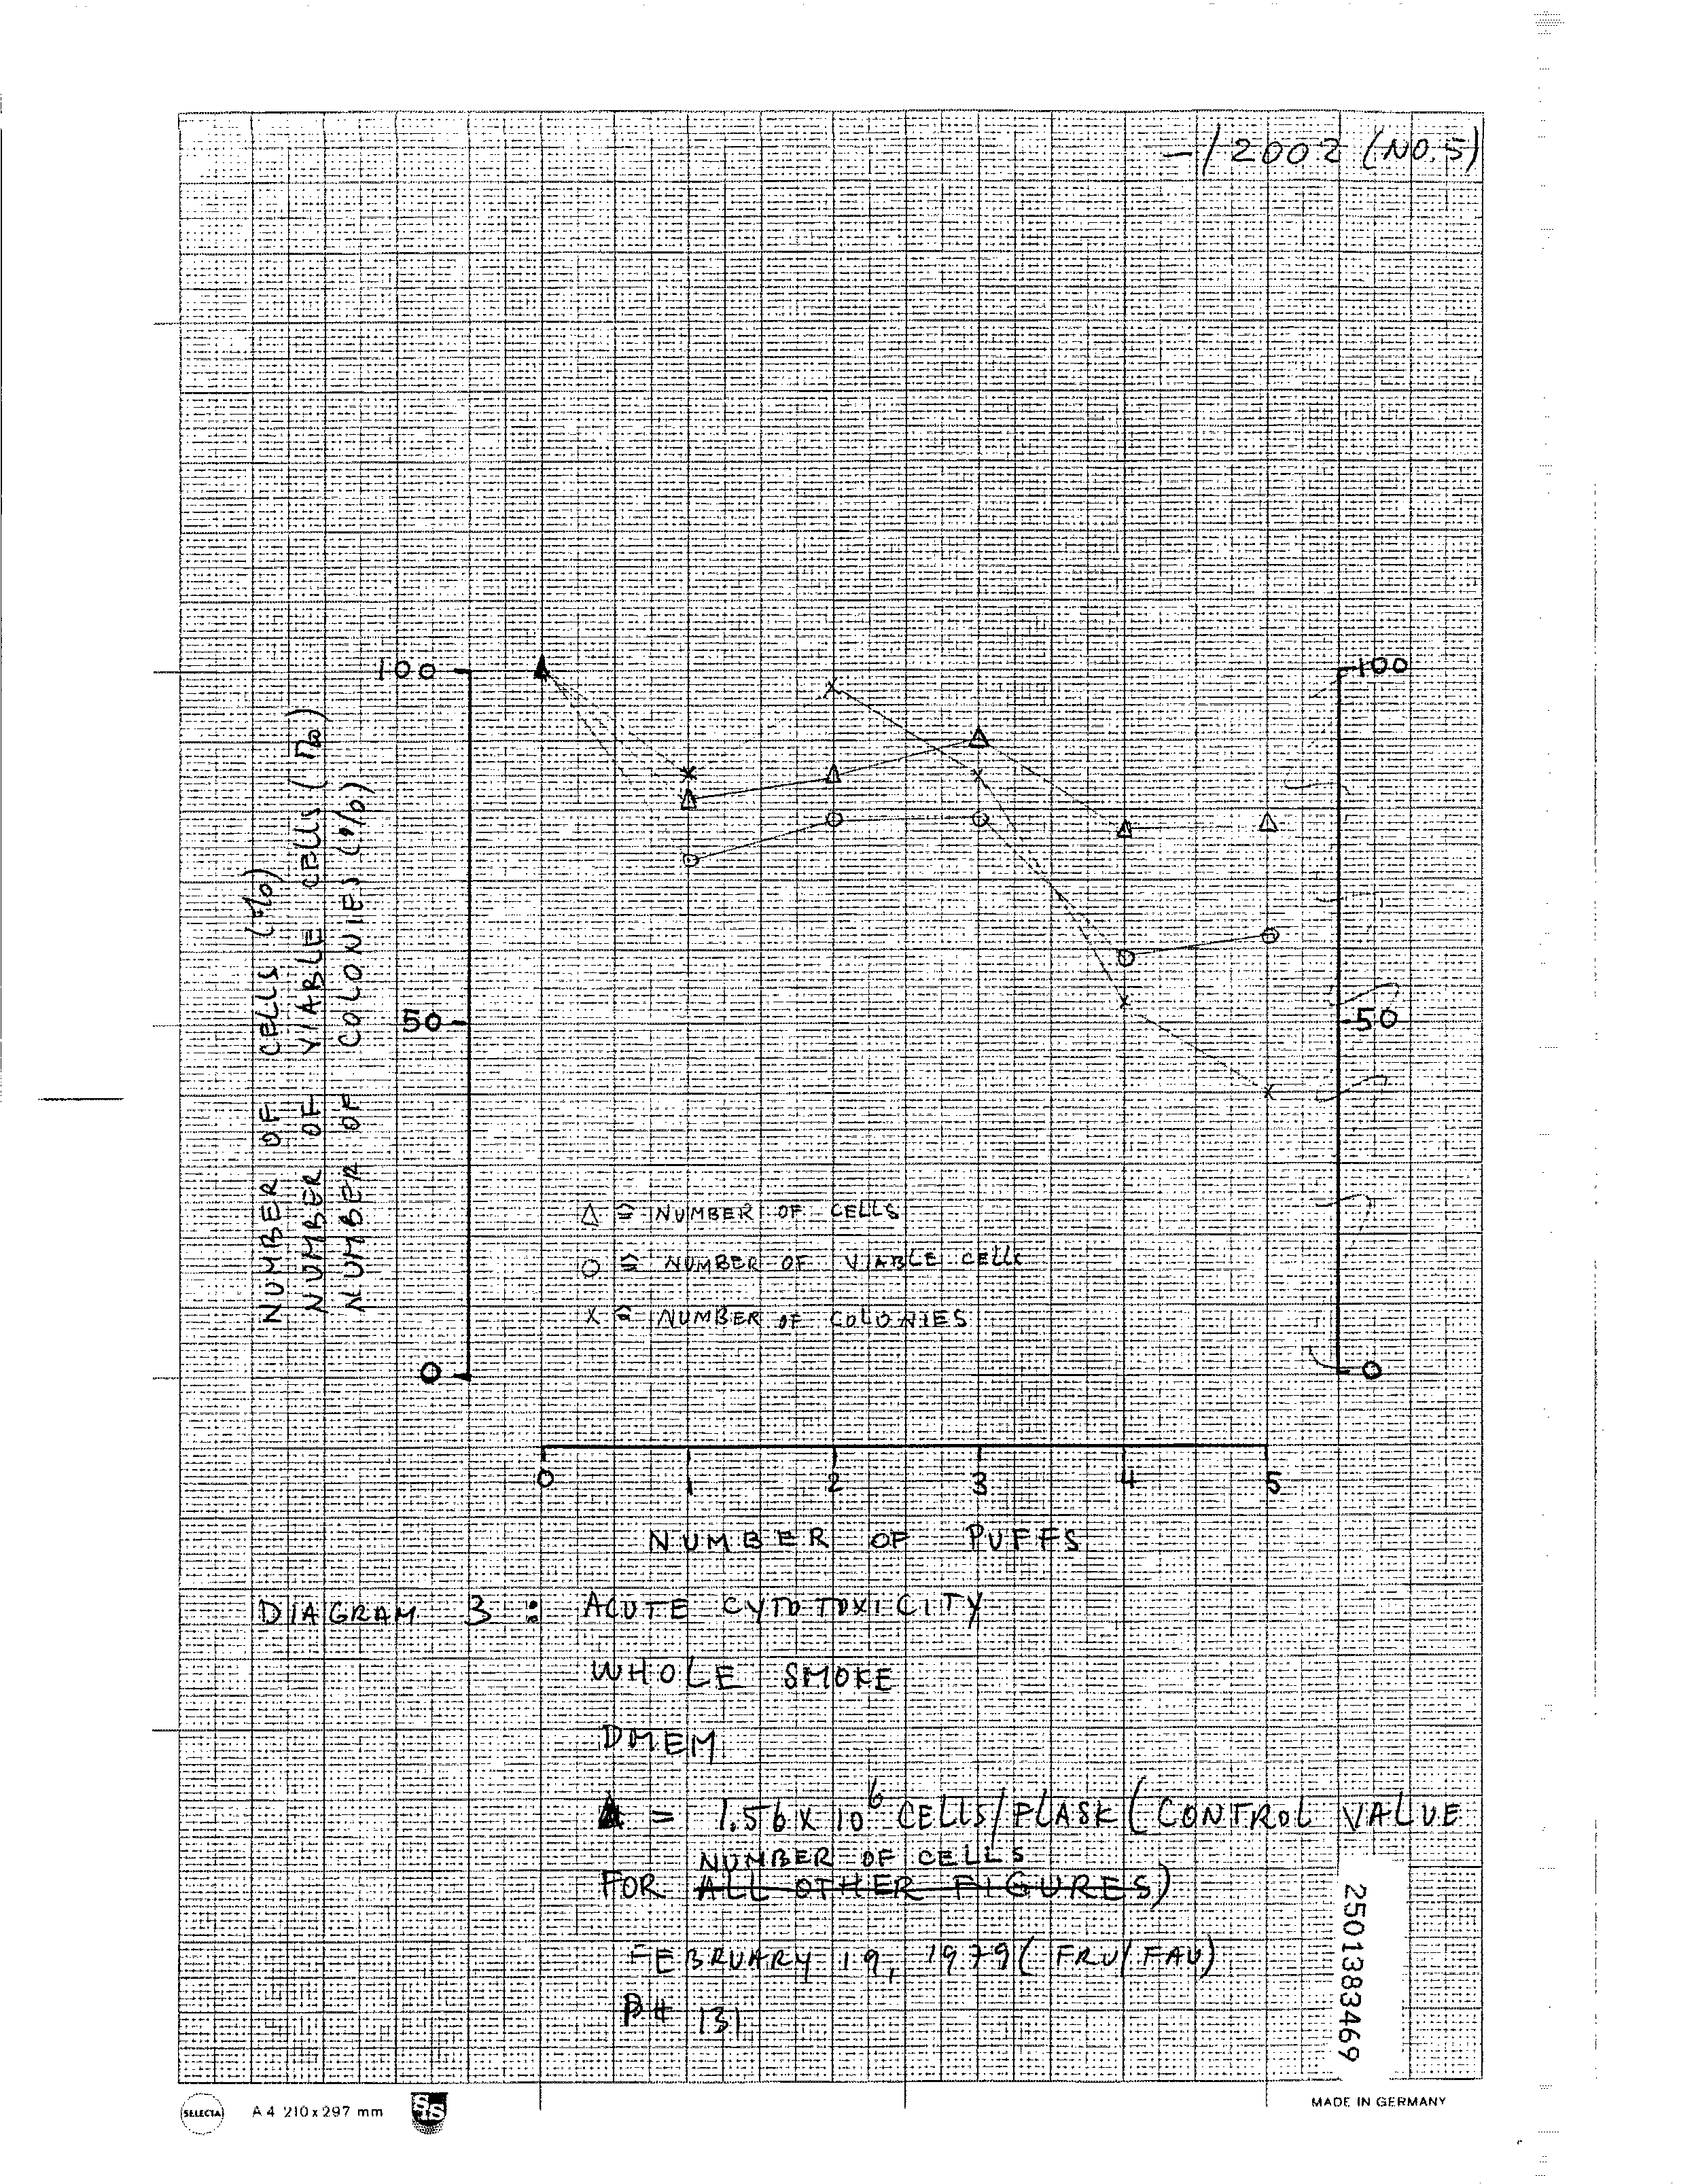 -/2002 (NO.5)
100
100
NUMBER OF CELLS (%)
NUMBER OF VIABLE CELLS (%)
NUMBER OF COLONIES (%)
50
50
△ ≙ NUMBER OF CELLS
○ ≙ NUMBER OF VIABLE CELLS
X ≙ NUMBER OF COLONIES
0
0
0 1 2 3 4 5
NUMBER OF PUFFS
DIAGRAM 3 : ACUTE CYTOTOXICITY
WHOLE SMOKE
DMEM
▲ = 1.56 X 10⁶ CELLS/FLASK (CONTROL VALUE
NUMBER OF CELLS
FOR ALL OTHER FIGURES)
FEBRUARY 19, 1979 (FRU/FAU)
PH 131
2501383469
SELECTA A4 210x297 mm S&S
MADE IN GERMANY